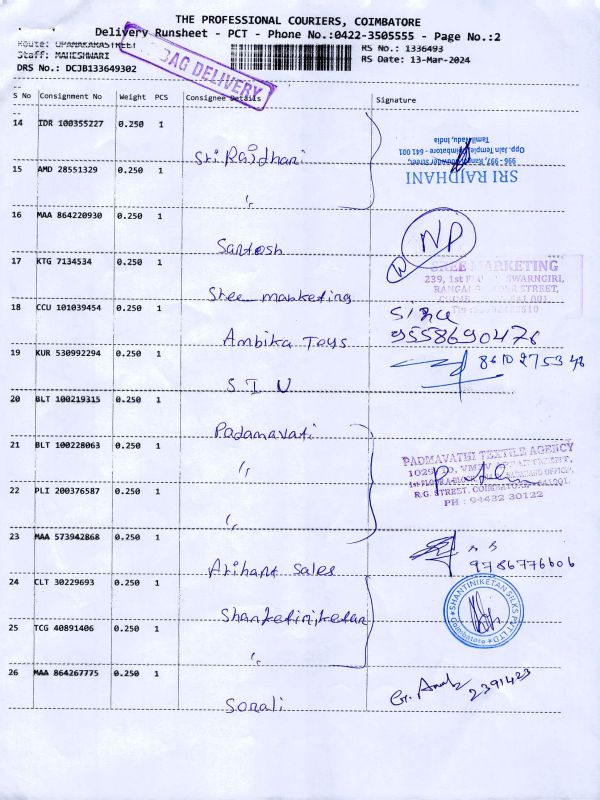 THE PROFESSIONAL COURIERS, COIMBATORE
Delivery Runsheet - PCT - Phone No.:0422-3505555 - Page No.:2
Route: UPANAKARASTREET
RS No.: 1336493
Staff: MAHESHWARI
RS Date: 13-Mar-2024
DRS No.: DCJB133649302
BAG DELIVERY
S No Consignment No Weight PCS Consignee Details Signature
14 IDR 100355227 0.250 1 Sri Rajdhani
SRI RAJDHANI
Opp. Jain Temple, Coimbatore - 641 001
Tamil Nadu, India
15 AMD 28551329 0.250 1 "
16 MAA 864220930 0.250 1 Santosh NP
17 KTG 7134534 0.250 1 Shree marketing
SHREE MARKETING
239, 1st SWARNGIRI,
STREET,
641 001
18 CCU 101039454 0.250 1 Ambika Toys
9558690476
19 KUR 530992294 0.250 1 S I V
8610275348
20 BLT 100219315 0.250 1 Padamavati
21 BLT 100228063 0.250 1 "
PADMAVATHI TEXTILE AGENCY
R.G. STREET, COIMBATORE - 641001.
PH : 94432 30122
22 PLI 200376587 0.250 1 "
23 MAA 573942868 0.250 1 Arihant Sales
9786776606
24 CLT 30229693 0.250 1 Shanketiniketan
SHANTINIKETAN SILKS PVT LTD
Coimbatore
25 TCG 40891406 0.250 1 "
26 MAA 864267775 0.250 1 Sonali
2391423